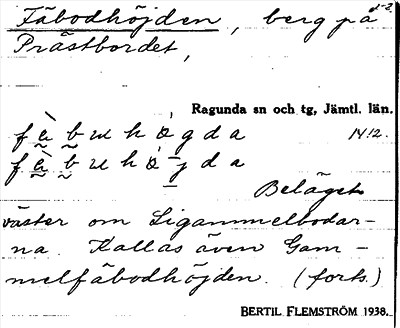 Fäbodhöjden, berg på
Prästbordet,
Ragunda sn och tg, Jämtl. län.
14 12.
Beläget
väster om Ligammelbodar-
na. Kallas även Gam-
melfäbodhöjden. (forts.)
BERTIL FLEMSTRÖM 1938.